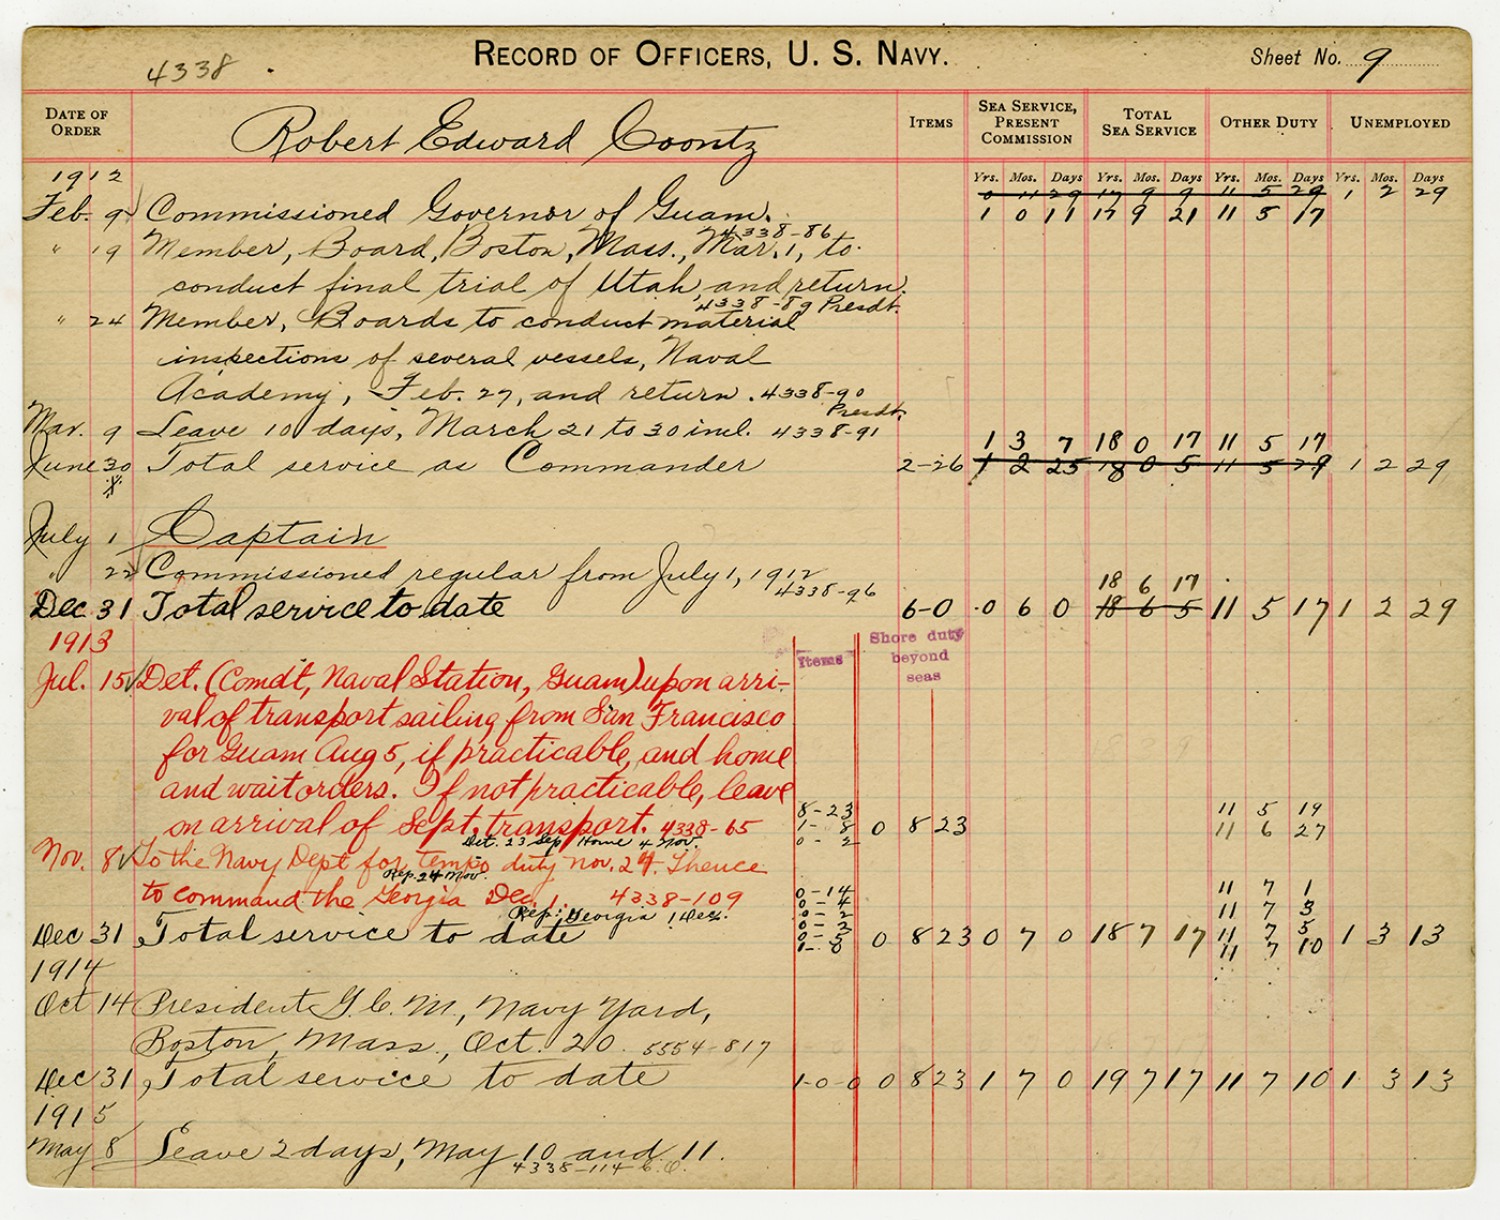 4338
RECORD OF OFFICERS, U. S. NAVY.
Sheet No. 9
DATE OF ORDER
Robert Edward Coontz
ITEMS
SEA SERVICE, PRESENT COMMISSION
TOTAL SEA SERVICE
OTHER DUTY
UNEMPLOYED
Yrs. Mos. Days Yrs. Mos. Days Yrs. Mos. Days Yrs. Mos. Days
1912
0 11 29 17 9 9 11 5 29 1 2 29
Feb. 9 Commissioned Governor of Guam. 1 0 11 17 9 21 11 5 17
4338-86
" 19 Member, Board, Boston, Mass., Mar. 1, to
conduct final trial of Utah, and return.
4338-89 Presdt.
" 24 Member, Boards to conduct material
inspections of several vessels, Naval
Academy, Feb. 27, and return. 4338-90
Presdt.
Mar. 9 Leave 10 days, March 21 to 30 incl. 4338-91
1 3 7 18 0 17 11 5 17
June 30 Total service as Commander 2-26 1 2 25 18 0 5 11 5 29 1 2 29
July 1 Captain
" 22 Commissioned regular from July 1, 1912
4338-96
18 6 17
Dec 31 Total service to date 6-0 0 6 0 18 6 5 11 5 17 1 2 29
1913
Items
Shore duty beyond seas
Jul. 15 Det. (Comdt, Naval Station, Guam) upon arri-
val of transport sailing from San Francisco
for Guam Aug 5, if practicable, and home
and wait orders. If not practicable, leave
8-23 11 5 19
on arrival of Sept. transport. 4338-65 1-8 0 8 23 11 6 27
Det. 23 Sep Home 4 Nov. 0-2
Nov. 8 To the Navy Dept for temp duty Nov. 24. Thence
Rep. 24 Nov.
to command the Georgia Dec. 1. 4338-109 0-14 11 7 1
0-4
Rep. Georgia 1 Dec. 0-2 11 7 3
0-2
Dec 31 Total service to date 0-5 0 8 23 0 7 0 18 7 17 11 7 5 1 3 13
1-8 11 7 10
1914
Oct 14 President G.C.M., Navy Yard,
Boston, Mass., Oct. 20. 5554-817
Dec 31 Total service to date 1-0-0 0 8 23 1 7 0 19 7 17 11 7 10 1 3 13
1915
May 8 Leave 2 days, May 10 and 11.
4338-114 C.O.